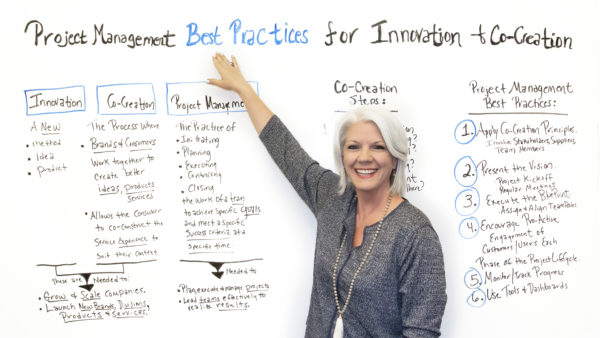 Project Management Best Practices for Innovation + Co-Creation
Innovation
A New
• method
• Idea
• product
Co-Creation
• The Process Where
Brands & Consumers
Work together to
Create better
Ideas, products
Services
• Allows the Consumer
to co-construct the
Service Experience to
Suit their Context
These are Needed to:
• Grow & Scale Companies.
• Launch New Brands, Divisions,
Products & Services.
Project Management
• The Practice of
• Initiating
• Planning
• Executing
• Controlling
• Closing
the work of a team
to achieve specific goals
and meet specific
Success criteria at a
Specific time.
Needed to
• Plan, execute & manage projects
• Lead teams effectively to
realize results.
Co-Creation
Steps:
Project Management
Best Practices:
1. Apply Co-Creation Principles.
Involve Stakeholders, Suppliers
Team Members
2. Present the Vision.
Project Kickoff
Regular Meetings
3. Execute the Blueprint
Assign & Align Team Roles
4. Encourage Pro-Active
Engagement of
Customers/Users Each
Phase of the Project Lifecycle
5. Monitor/Track Progress
6. Use Tools & Dashboards